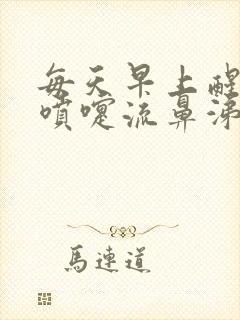 每天早上醒
噴嚏流鼻涕
馬連道